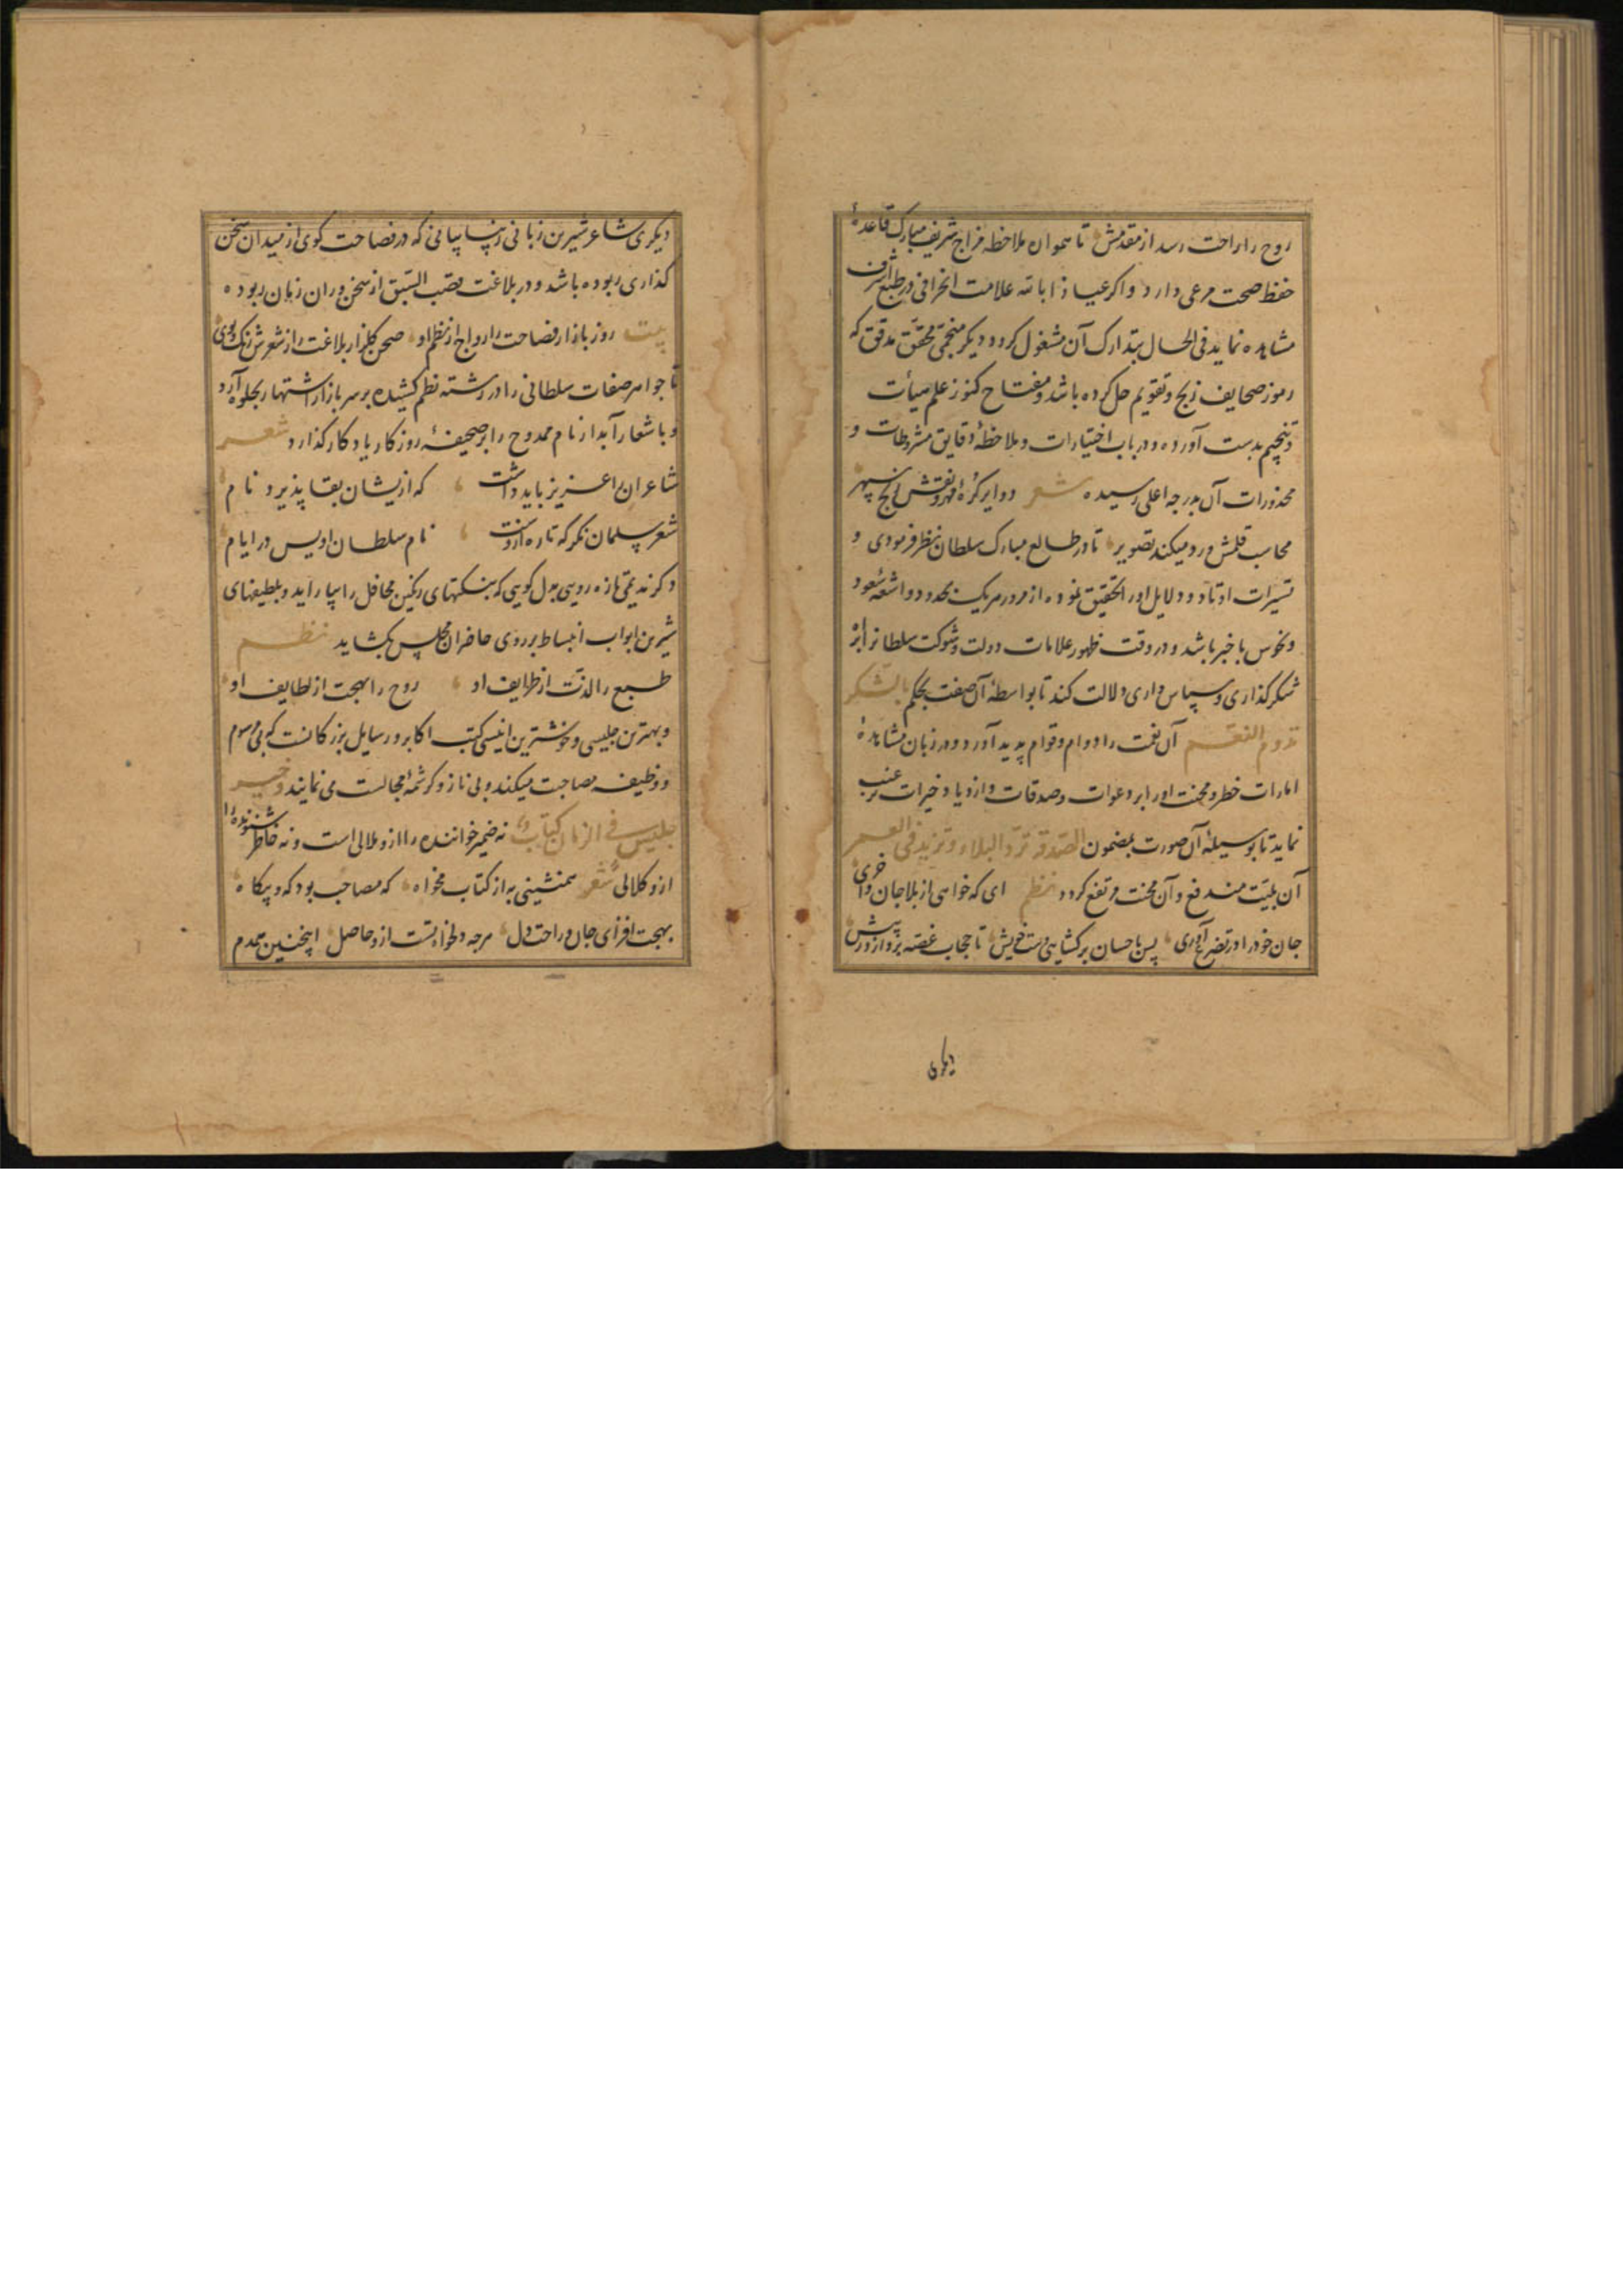 روح را راحت رسد از مقدمش تا همواره ملاحظه مزاج شریف مبارک قاعدهٔ
حفظ صحت مرعی دارد و اکر عیاذا بالله علامت انحرافی در طبع اشرف
مشاهده نماید فی الحال بتدارک آن مشغول کردد و دیکر منجمی محقق مدقق که
رموز صحایف زیج و تقویم حل کرده باشد و مفتاح کنوز علم هیأت
و تنجیم بدست آورده و در باب اختیارات و ملاحظهٔ دقایق مشروطات و
محذورات آن بدرجه اعلی رسیده شعر دوایر کرهٔ و نقش زیج سپهر
محاسب قلمش در و میکند تصویر تا در طالع مبارک سلطان نظر فرمودی و
تسییرات اوتاد و دلایل او را تحقیق نموده از مرور هر یک بحدود و اشعهٔ سعود
و نحوس با خبر باشد و در وقت ظهور علامات دولت و شوکت سلطانرا بر
شکر کذاری و سپاس داری دلالت کند تا بواسطهٔ آن صفت بحکم بالشکر
تدوم النعم آن نعمت را دوام و قوام پدید آورد و در زمان مشاهدهٔ
امارات خطر و محنت او را بر دعوات و صدقات و ازدیاد خیرات ترغیب
نماید تا بوسیلهٔ آن صورت بمضمون الصدقة ترد البلاء و تزید فی العمر
آن بلیت مندفع و آن محنت مرتفع کردد نظم ای که خواهی از بلا جان واخری
جان خود را در تضرع آوری پس باحسان برکشایی دست خویش تا حجاب غصه بردازد ز پیش
دیکری
دیکری شاعر شیرین زبانی زیبا بیانی که در فصاحت کوی از میدان سخن
کذاری ربوده باشد و در بلاغت قصب السبق از سخن وران زمان ربوده
بیت روز بازار فصاحت را رواج از نظم او صحن کلزار بلاغت را ز شعرش رنک و بوی
تا جواهر صفات سلطانی را در رشته نظم کشیده بر سر بازار اشتهار بجلوه آرد
و باشعار آبدار نام ممدوح را بر صحیفهٔ روزکار یادکار کذارد شعر
شاعران را عزیز باید داشت که ازیشان بقا پذیرد نام
شعر سلمان نکر که تازه ازوست نام سلطان اویس در ایام
دکر ندیمی تازه رویی بذل کویی که بنکتهای رنکین محافل را بیاراید و بلطیفهای
شیرین ابواب انبساط بر روی حاضران مجلس بکشاید نظم
طبع را لذت از ظرایف او روح را بهجت از لطایف او
و بهترین جلیسی و خوشترین انیسی کتب اکابر و رسایل بزرکانست که بی مرسوم
و وظیفه مصاحبت میکند و بی ناز و کرشمهٔ مجالست می نمایند و خیر
جلیس فی الزمان کتاب نه ضمیر خواننده را ازو ملالی است و نه خاطر شنونده را
ازو کلالی شعر همنشینی به از کتاب مخواه که مصاحب بود که و بیکاه
بهجت افزای جان و راحت دل هرچه دلخواه تست ازو حاصل اینچنین همدم